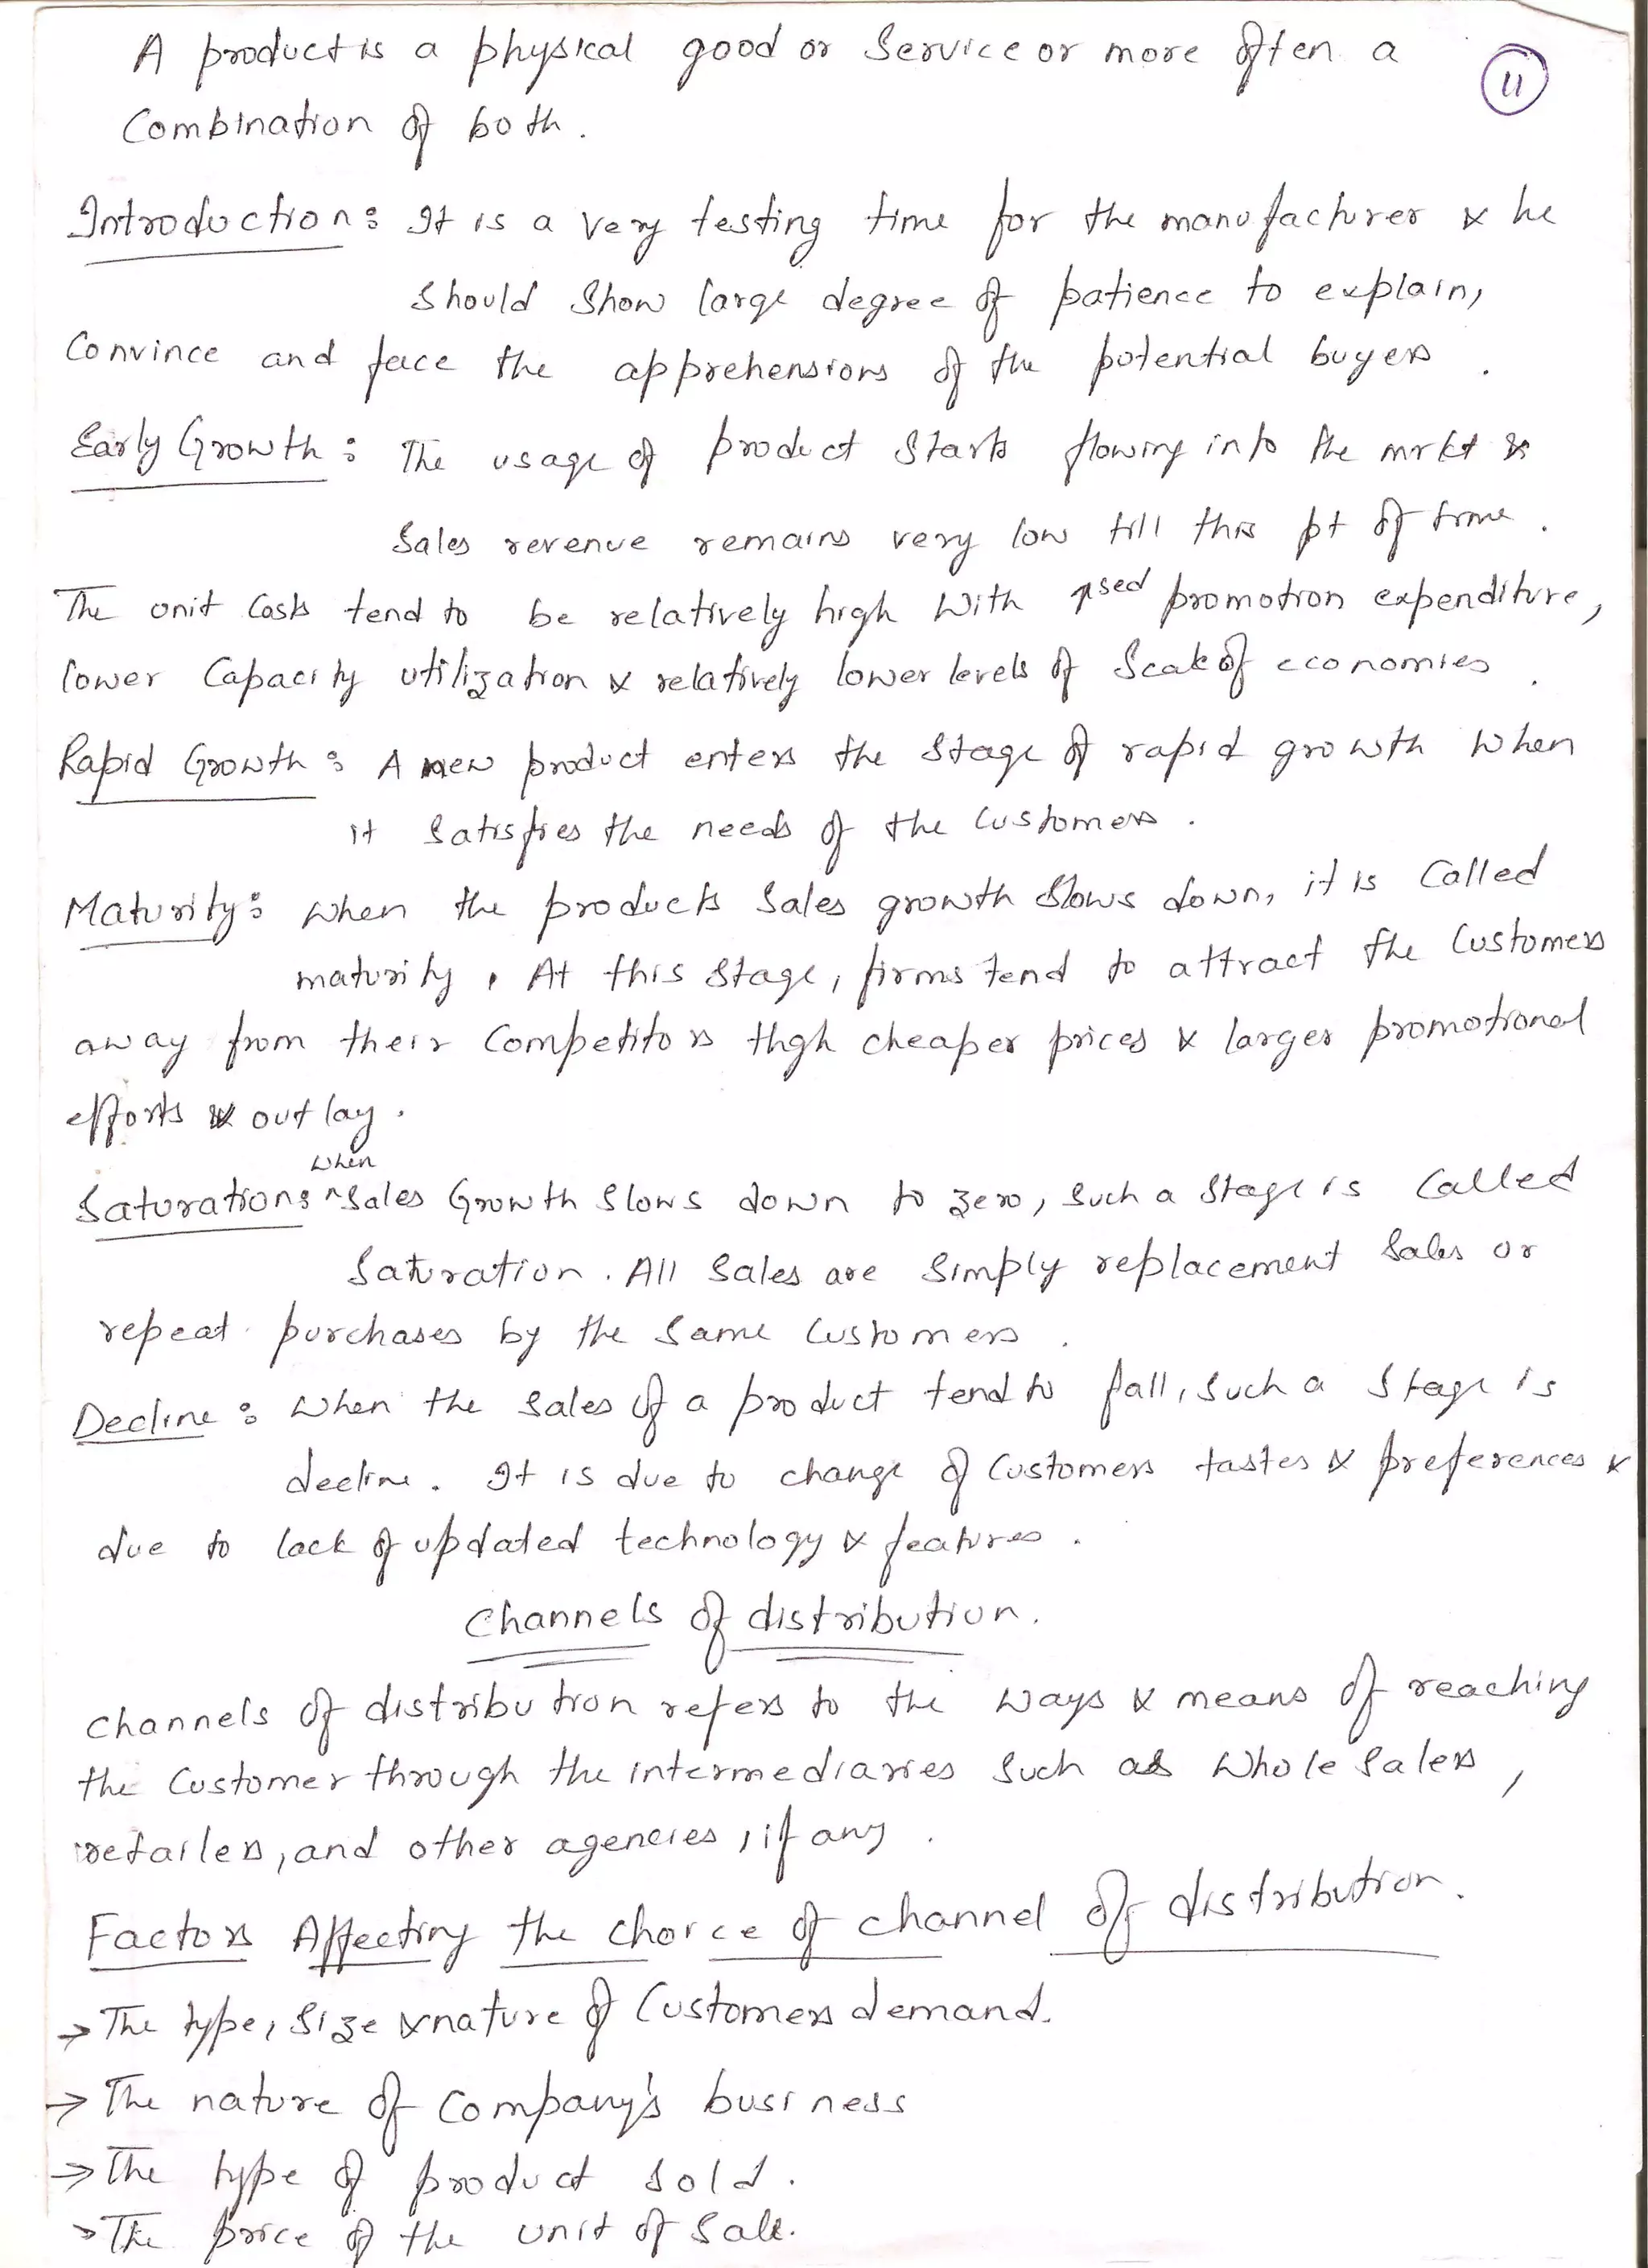 A product is a physical good or Service or more often a
11
Combination of both.
Introduction: It is a very testing time for the manufacturer & he
Should Show large degree of patience to explain,
Convince and face the apprehensions of the potential buyers.
Early Growth: The usage of product Starts flowing into the mrkt &
Sales revenue remains very low till this pt of time.
The unit Costs tend to be relatively high With ↑sed promotion expenditure,
lower Capacity utilization & relatively lower levels of Scale of economies.
Rapid Growth: A new product enters the Stage of rapid growth When
it Satisfies the needs of the Customers.
Maturity: When the products Sales growth Slows down, it is Called
maturity. At this Stage, firms tend to attract the Customers
away from their Competitors thgh cheaper prices & larger promotional
efforts & outlay.
When
Saturation: ^Sales Growth Slows down to zero, Such a Stage is Called
Saturation. All Sales are Simply replacement Sales or
repeat purchases by the Same Customers.
Decline: When the Sales of a product tend to fall, Such a Stage is
decline. It is due to change of Customers tastes & preferences &
due to lack of updated technology & features.
Channels of distribution.
Channels of distribution refers to the Ways & means of reaching
the Customer through the intermediaries Such as Whole Salers,
retailers, and other agencies, if any.
Factors Affecting the Choice of channel of distribution.
→ The type, Size & nature of Customers demand.
→ The nature of Company's business
→ The type of product Sold.
→ The price of the unit of Sale.